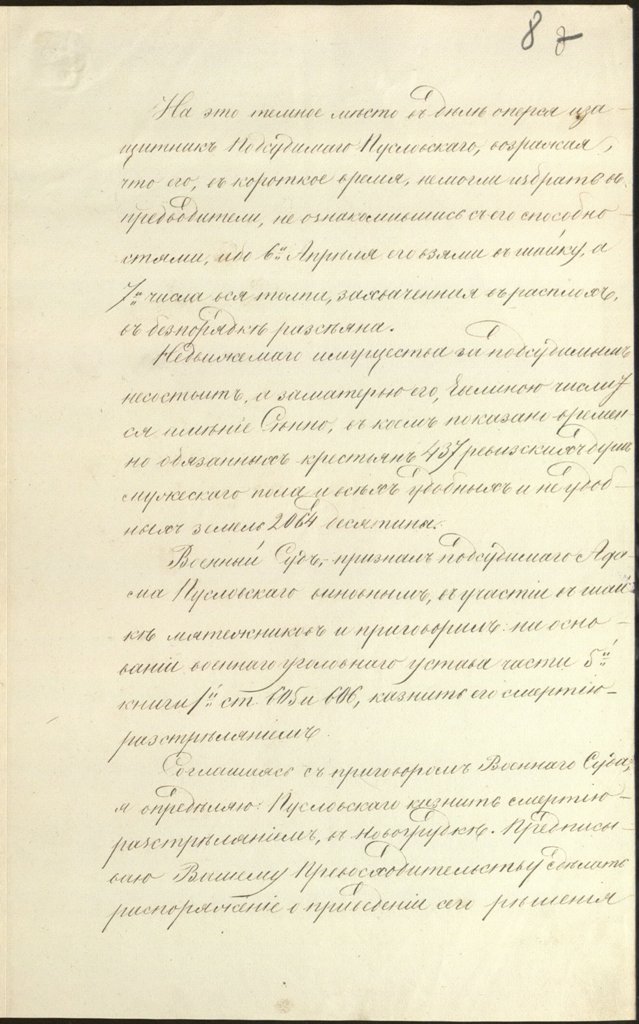 8 8
На это темное место въ дѣлѣ оперся и за-
щитникъ Подсудимаго Пусловскаго, возражая,
что его, въ короткое время, немогли избрать въ
предводители, не ознакомившись съ его способно-
стями, ибо 6го Апрѣля его взяли въ шайку, а
7го числа вся толпа, захваченная въ расплохъ,
въ безпорядкѣ разсѣяна.
Недвижемаго имущества за подсудимымъ
несостоитъ, а за матерью его, числит-
ся имѣніе въ коемъ показано времен-
но обязанныхъ крестьянъ 437 ревизскихъ душъ
мужескаго пола и всѣхъ удобныхъ и не удоб-
ныхъ земель 2064 десятины.
Военный Судъ, призналъ подсудимаго Ада-
ма Пусловскаго виновнымъ, въ участіи въ шай-
кѣ мятежниковъ и приговорилъ: на осно-
ваніи военнаго уголовнаго устава части 5й
книги 1й ст. 605 и 606, казнить его смертію-
разстрѣляніемъ.
Соглашаясь съ приговоромъ Военнаго Суда,
я опредѣляю: Пусловскаго казнить смертію-
разстрѣляніемъ, въ Новогрудкѣ. Предписы-
ваю Вашему Превосходительству сдѣлать
распоряженіе о приведеніи сего рѣшенія